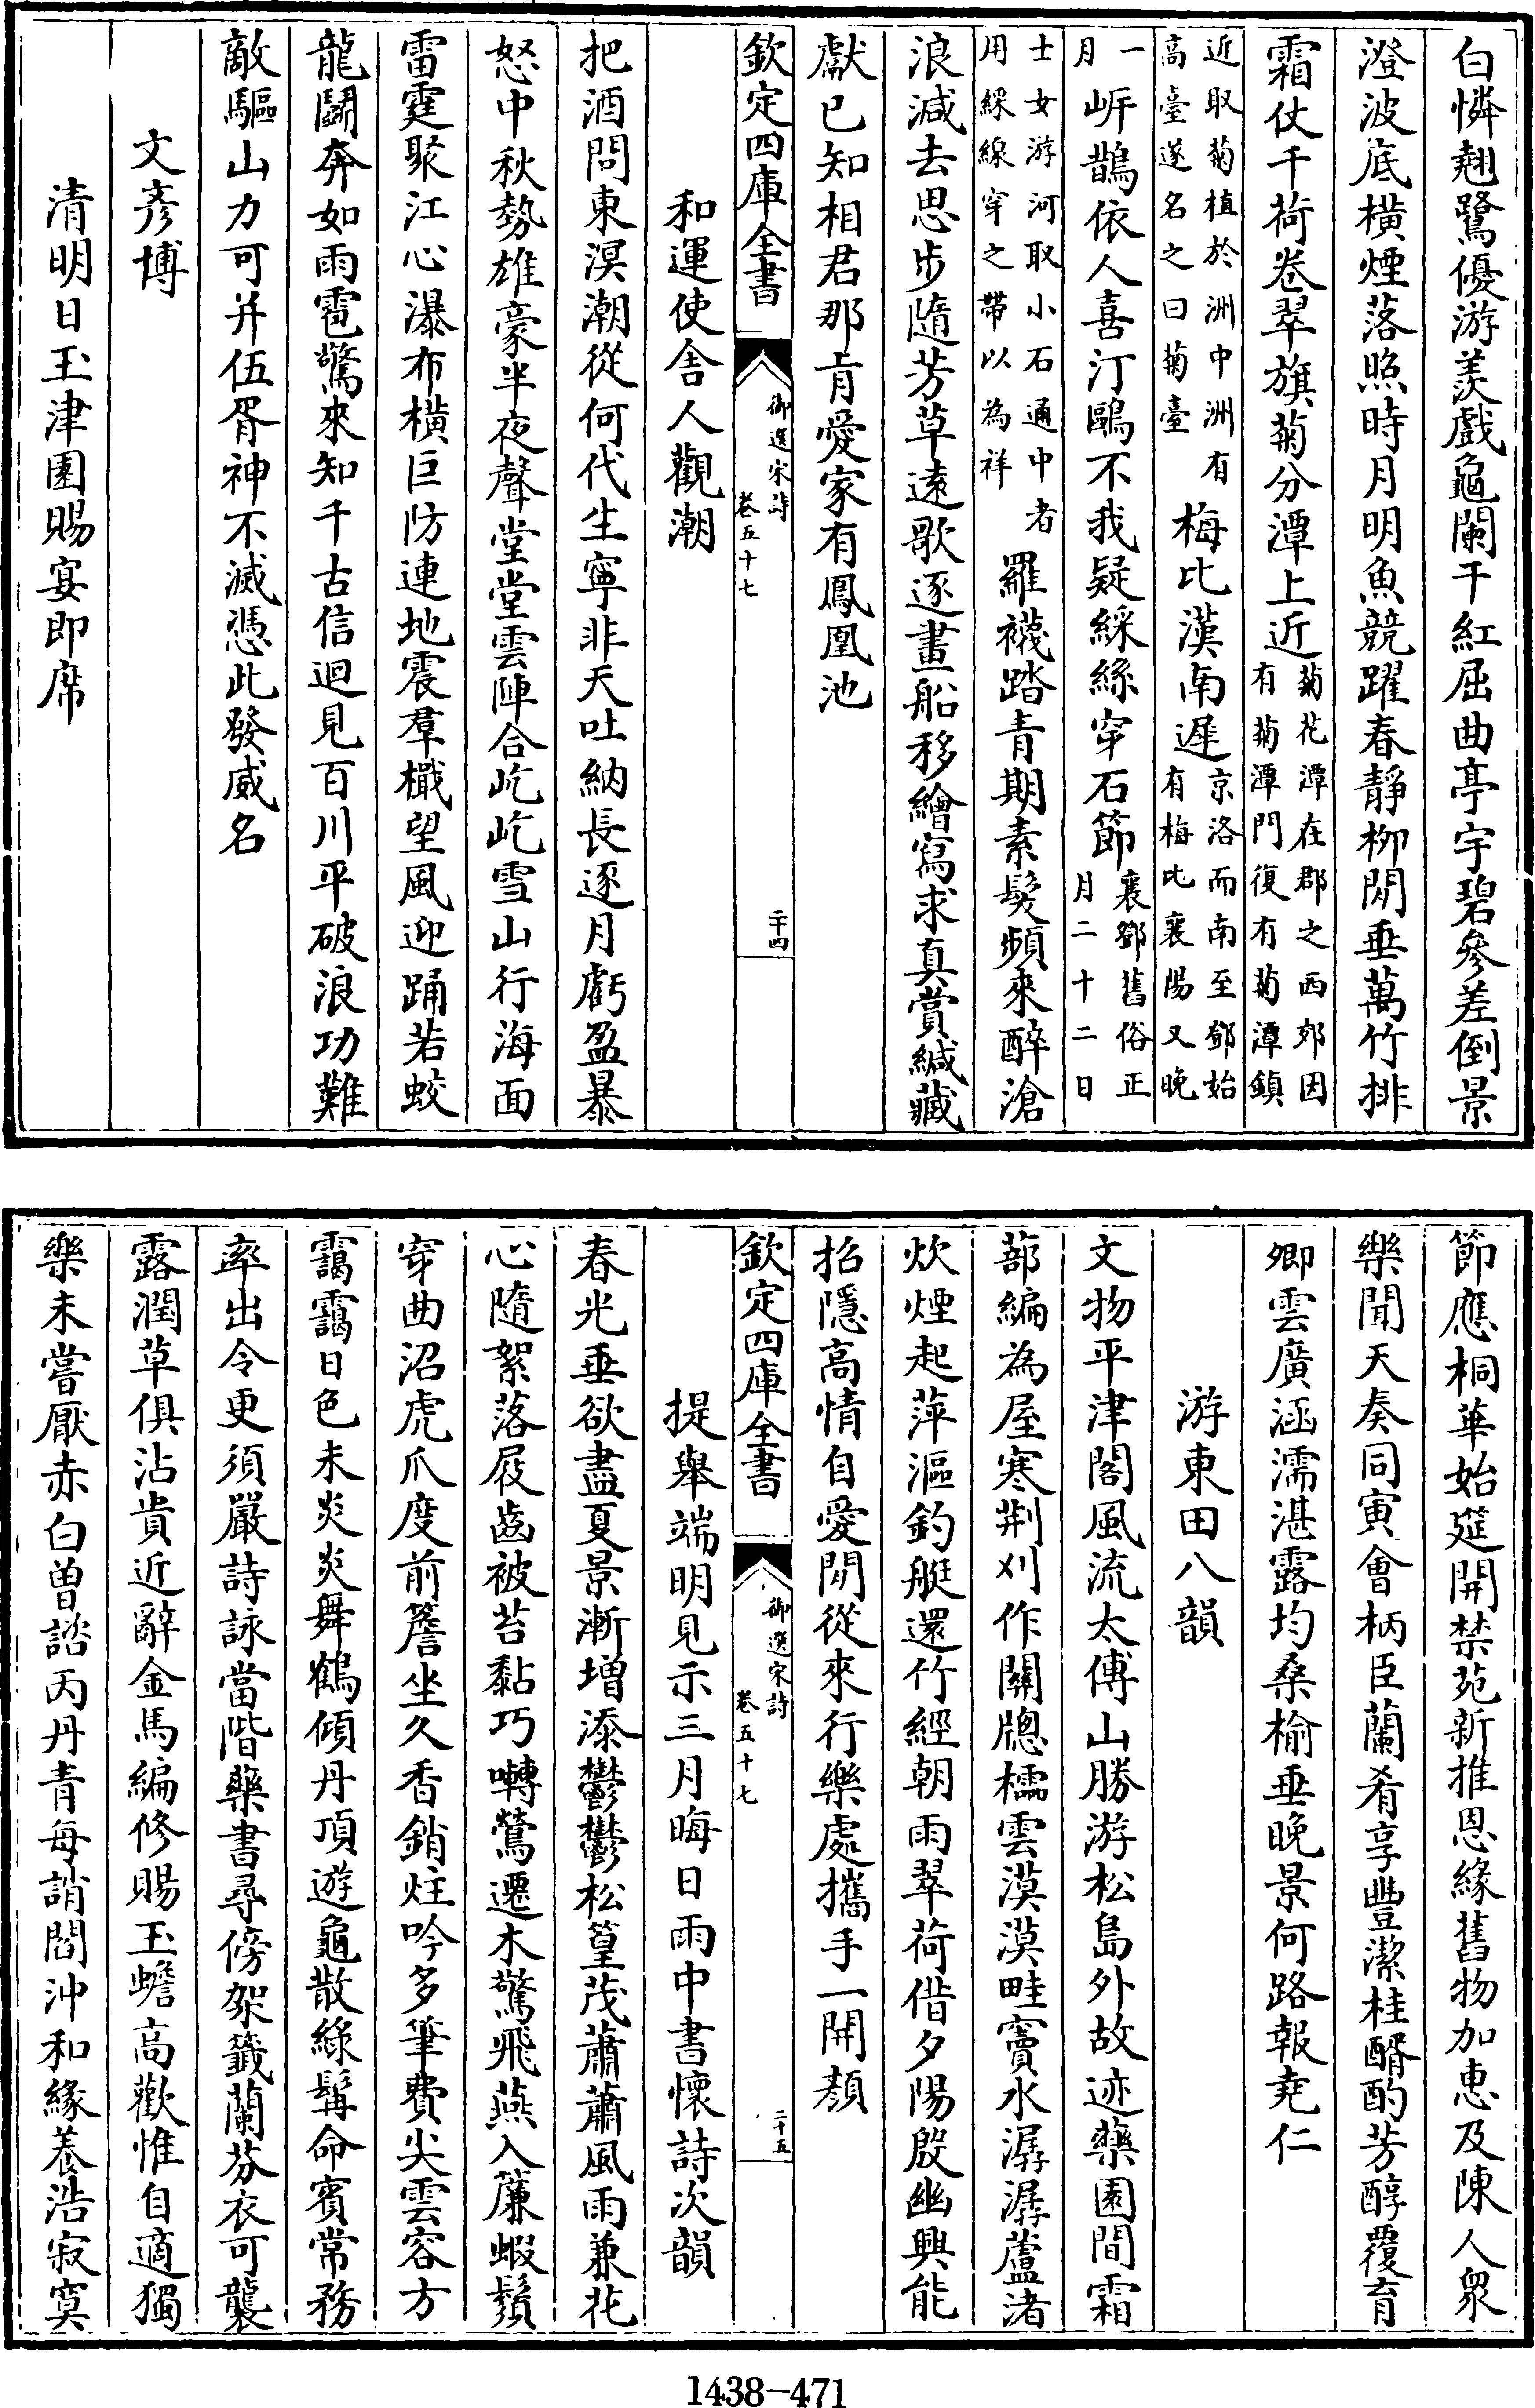 白憐翹鷺優游羨戲龜闌干紅屈曲亭宇碧參差倒景
澄波底橫煙落照時月明魚競躍春靜柳閒垂萬竹排
霜仗千荷卷翠旗菊分潭上近菊花潭在郡之西郊因有菊潭門復有菊潭鎮
近取菊植於洲中洲有高臺遂名之曰菊臺梅比漢南遲京洛而南至鄧始有梅比襄陽又晚
一月岓鵲依人喜汀鷗不我疑綵絲穿石節襄鄧舊俗正月二十二日
士女游河取小石通中者用綵線穿之帶以為祥羅襪踏青期素髮頻來醉滄
浪減去思步隨芳草遠歌逐畫船移繪寫求真賞緘藏
獻已知相君那肯愛家有鳳凰池
欽定四庫全書
御選宋詩
卷五十七
二十四
和運使舍人觀潮
把酒問東溟潮從何代生寧非天吐納長逐月虧盈暴
怒中秋勢雄豪半夜聲堂堂雲陣合屹屹雪山行海面
雷霆聚江心瀑布橫巨防連地震羣檝望風迎踊若蛟
龍鬭奔如雨雹驚來知千古信迴見百川平破浪功難
敵驅山力可并伍胥神不滅憑此發威名
文彥博
清明日玉津園賜宴即席
節應桐華始筵開禁苑新推恩緣舊物加惠及陳人眾
樂聞天奏同寅會柄臣蘭肴享豐潔桂醑酌芳醇覆育
卿雲廣涵濡湛露均桑榆垂晚景何路報堯仁
游東田八韻
文物平津閣風流太傅山勝游松島外故迹藥園間霜
蔀編為屋寒荆刈作關牕檽雲漠漠畦竇水潺潺蘆渚
炊煙起萍漚釣艇還竹經朝雨翠荷借夕陽殷幽興能
招隱高情自愛閒從來行樂處攜手一開顏
欽定四庫全書
御選宋詩
卷五十七
二十五
提舉端明見示三月晦日雨中書懷詩次韻
春光垂欲盡夏景漸增添鬱鬱松篁茂蕭蕭風雨兼花
心隨絮落屐齒被苔黏巧囀鶯遷木驚飛燕入簾蝦鬚
穿曲沼虎爪度前簷坐久香銷炷吟多筆費尖雲容方
靄靄日色未炎炎舞鶴傾丹頂遊龜散綠髯命賓常務
率出令更須嚴詩詠當階藥書尋傍架籤蘭芬衣可襲
露潤草俱沾貴近辭金馬編修賜玉蟾高歡惟自適獨
樂未嘗厭赤白曾諮丙丹青每誚閻沖和緣養浩寂寞
1438-471